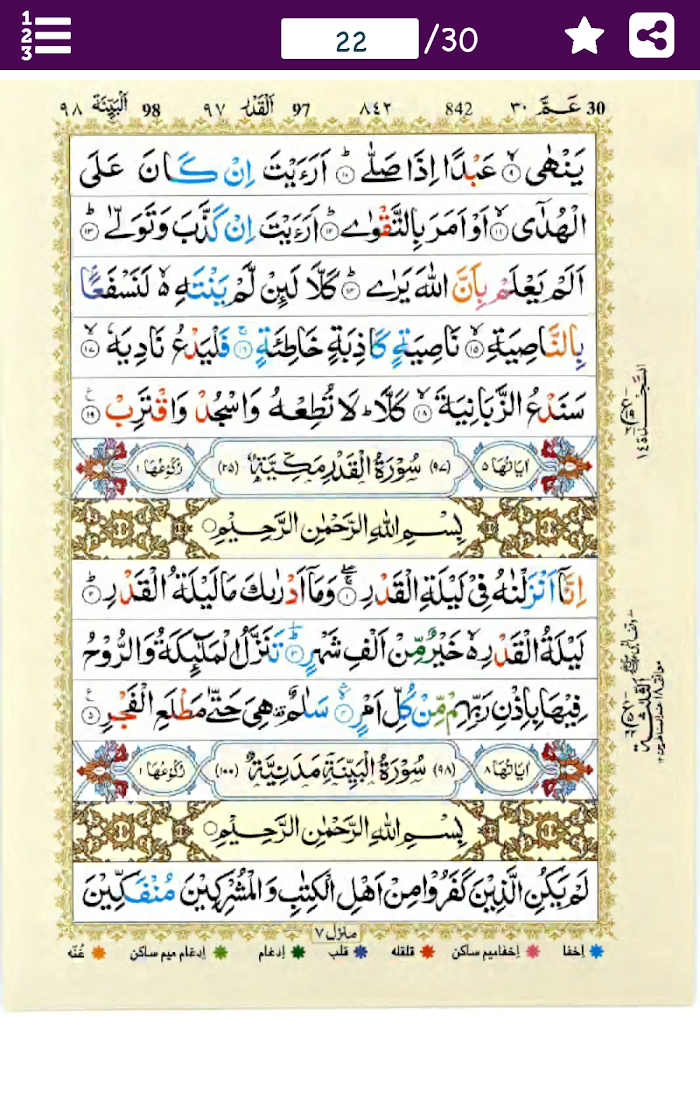 1
2
3
22 /30
30 عَمَّ ٣٠ 842 ٨٤٢ 97 اَلْقَدْر ٩٧ 98 اَلْبَيِّنَة ٩٨
يَنْهٰىۙ ۹ عَبْدًا اِذَا صَلّٰىؕ ۱۰ اَرَءَيْتَ اِنْ كَانَ عَلَى
الْهُدٰٓىۙ ۱۱ اَوْ اَمَرَ بِالتَّقْوٰىؕ ۱۲ اَرَءَيْتَ اِنْ كَذَّبَ وَتَوَلّٰىؕ ۱۳
اَلَمْ يَعْلَمْ بِاَنَّ اللّٰهَ يَرٰىؕ ۱۴ كَلَّا لَئِنْ لَّمْ يَنْتَهِ ۙ لَنَسْفَعًۢا
بِالنَّاصِيَةِۙ ۱۵ نَاصِيَةٍ كَاذِبَةٍ خَاطِئَةٍۚ ۱۶ فَلْيَدْعُ نَادِيَهٗۙ ۱۷
سَنَدْعُ الزَّبَانِيَةَۙ ۱۸ كَلَّاؕ لَا تُطِعْهُ وَاسْجُدْ وَاقْتَرِبْ ۱۹
اٰيَاتُهَا ٥ (٩٧) سُوْرَةُ الْقَدْرِ مَكِّيَّةٌ (٢٥) رُكُوْعُهَا ١
بِسْمِ اللّٰهِ الرَّحْمٰنِ الرَّحِيْمِ
اِنَّاۤ اَنْزَلْنٰهُ فِيْ لَيْلَةِ الْقَدْرِ ۱ وَمَاۤ اَدْرٰىكَ مَا لَيْلَةُ الْقَدْرِؕ ۲
لَيْلَةُ الْقَدْرِ ۙ خَيْرٌ مِّنْ اَلْفِ شَهْرٍؕ ۳ تَنَزَّلُ الْمَلٰٓئِكَةُ وَالرُّوْحُ
فِيْهَا بِاِذْنِ رَبِّهِمْ مِّنْ كُلِّ اَمْرٍۙ ۴ سَلٰمٌ ۛ هِيَ حَتّٰى مَطْلَعِ الْفَجْرِ ۵
اٰيَاتُهَا ٨ (٩٨) سُوْرَةُ الْبَيِّنَةِ مَدَنِيَّةٌ (١٠٠) رُكُوْعُهَا ١
بِسْمِ اللّٰهِ الرَّحْمٰنِ الرَّحِيْمِ
لَمْ يَكُنِ الَّذِيْنَ كَفَرُوْا مِنْ اَهْلِ الْكِتٰبِ وَالْمُشْرِكِيْنَ مُنْفَكِّيْنَ
منزل ٧
إخفا إخفا ميم ساكن قلقله قلب إدغام إدغام ميم ساكن غُنّه